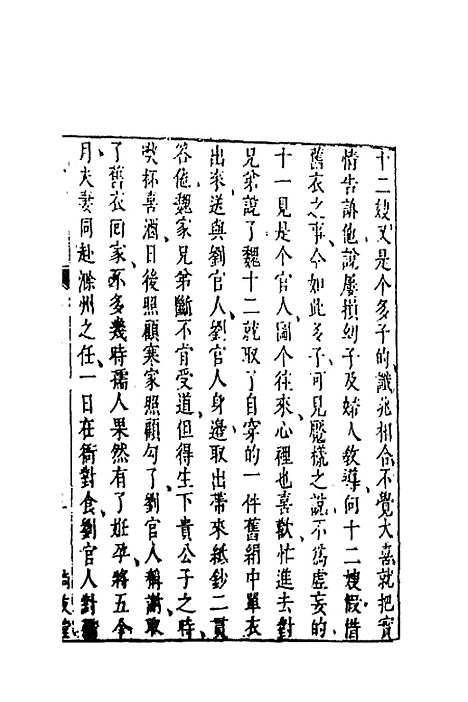 十二嫂又是个多子的讖兆相合不覺大喜就把實
情告訴他說屢損幼子及婦人教導向十二嫂假借
舊衣之事今如此多子可見魘樣之說不爲虛妄的
十一見是个官人圖个往來心裡也喜歡忙進去對
兄弟說了魏十二就取了自穿的一件舊絹中單衣
出來送與劉官人劉官人身邊取出帶來紙鈔二貫
答他魏家兄弟斷不肯受道但得生下貴公子之時
喫杯喜酒日後照顧寒家照顧勾了劉官人稱謝取
了舊衣回家不多幾時孺人果然有了姙孕將五个
月夫妻同赴滁州之任一日在衙對食劉官人對
尚友堂